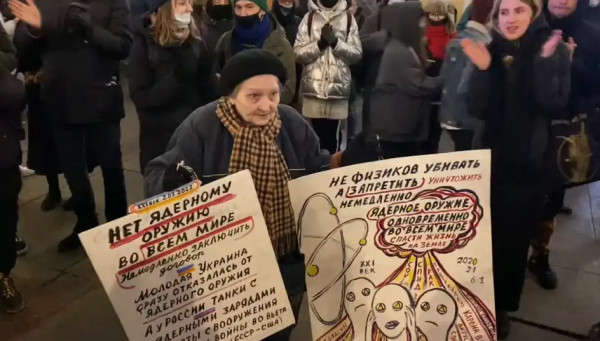 НЕТ ЯДЕРНОМУ
ОРУЖИЮ
ВО ВСЕМ МИРЕ
Немедленно ЗАКЛЮЧИТЬ
договор
МОЛОДАЯ УКРАИНА
СРАЗУ ОТКАЗАЛАСЬ ОТ
ЯДЕРНОГО ОРУЖИЯ
А У РОССИИ ТАНКИ С
ЯДЕРНЫМИ ЗАРЯДАМИ
С ВООРУЖЕНИЯ
ВОЙНЫ ВО ВЬЕТ
СССР - США)
НЕ ФИЗИКОВ УБИВАТЬ
А ЗАПРЕТИТЬ УНИЧТОЖИТЬ
НЕМЕДЛЕННО
ЯДЕРНОЕ ОРУЖИЕ
ОДНОВРЕМЕННО
ВО ВСЕМ МИРЕ
СПАСТИ ЖИЗНЬ
НА ЗЕМЛЕ
XXI
ВЕК
СПИД
2020
21